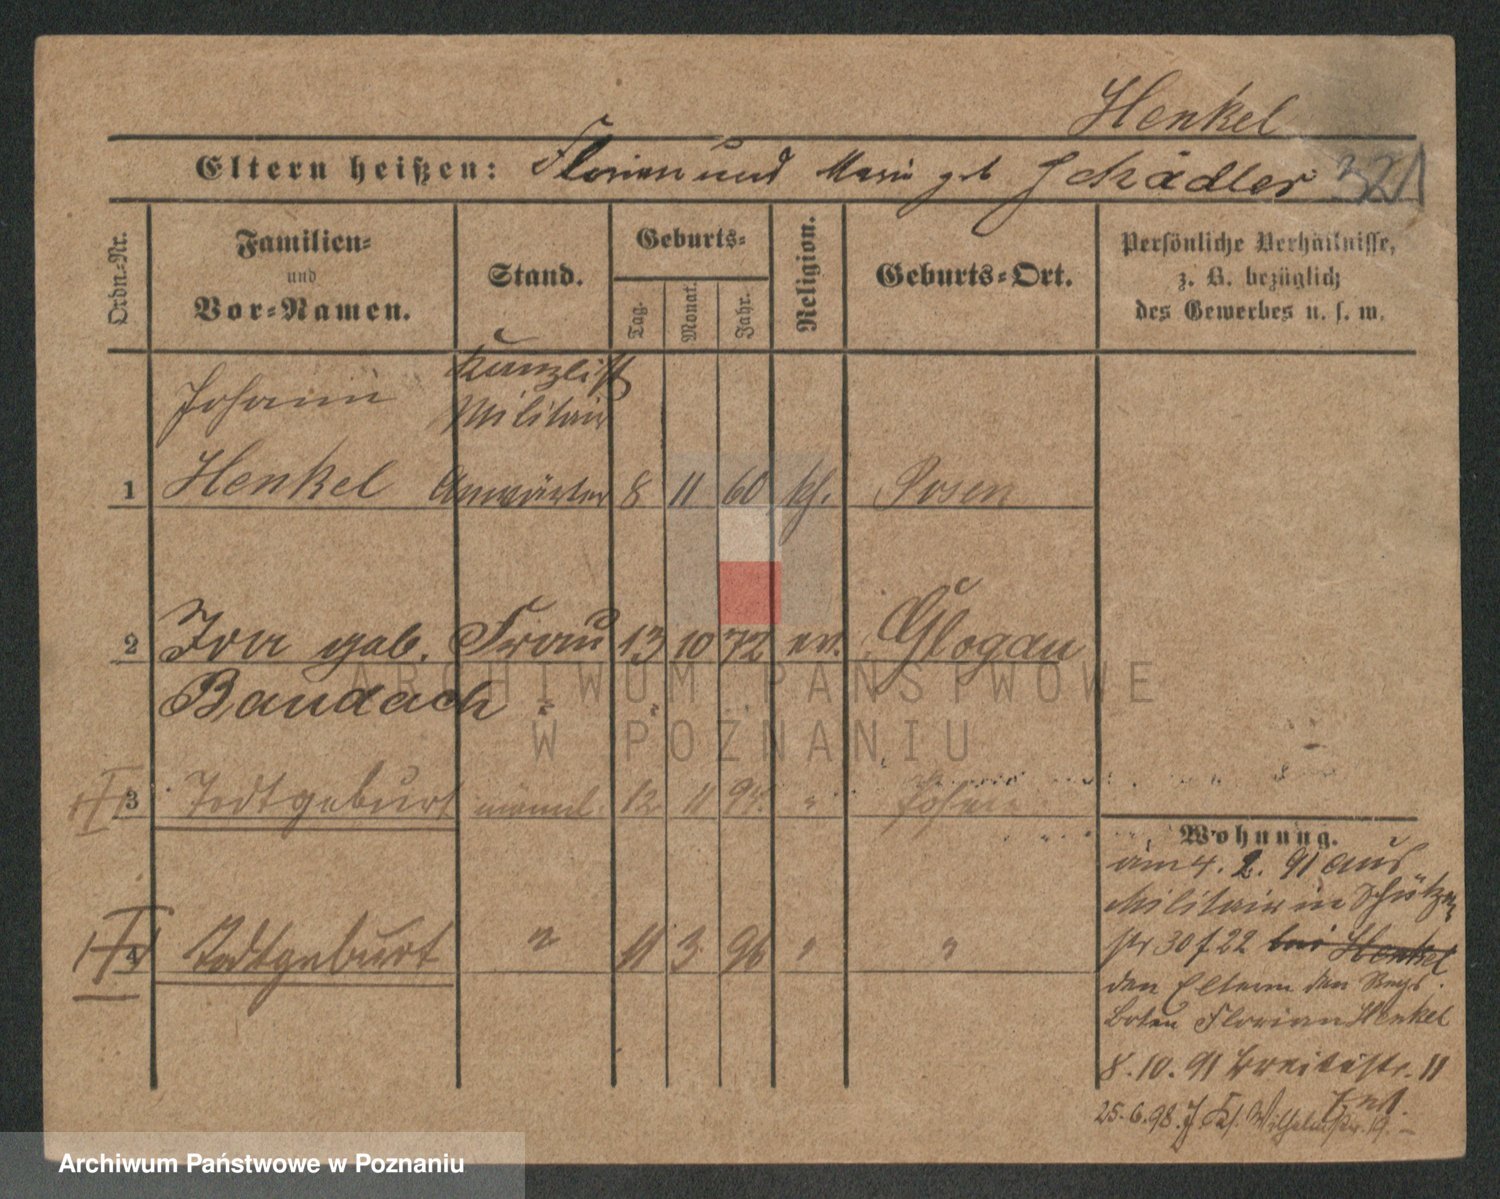 Henkel
Eltern heißen: Florian und Marie geb Schädler 321
Ordn.-Nr.
Familien-
und
Vor-Namen.
Stand.
Geburts-
Tag.
Monat.
Jahr.
Religion.
Geburts-Ort.
Persönliche Verhältnisse,
z. B. bezüglich
des Gewerbes u. s. w.
Johann Kanzlist
Militair
1 Henkel Anwärter 8 11 60 kth. Posen
2 Ida geb. Frau 13 10 72 ev. Glogau
Baudach
3 Todtgeburt männl. 12 11 94 " Posen
4 Todtgeburt " 11 3 96 " "
Wohnung.
am 4. 2. 91 aus
Militair in Schützen
str 30 f 22 bei Henkel
den Eltern den Regs.
boten Florian Henkel
8.10.91 Breitestr. 11
25.6.98. Kl. Wilhelmstr. 19.
ARCHIWUM PAŃSTWOWE
W POZNANIU
Archiwum Państwowe w Poznaniu